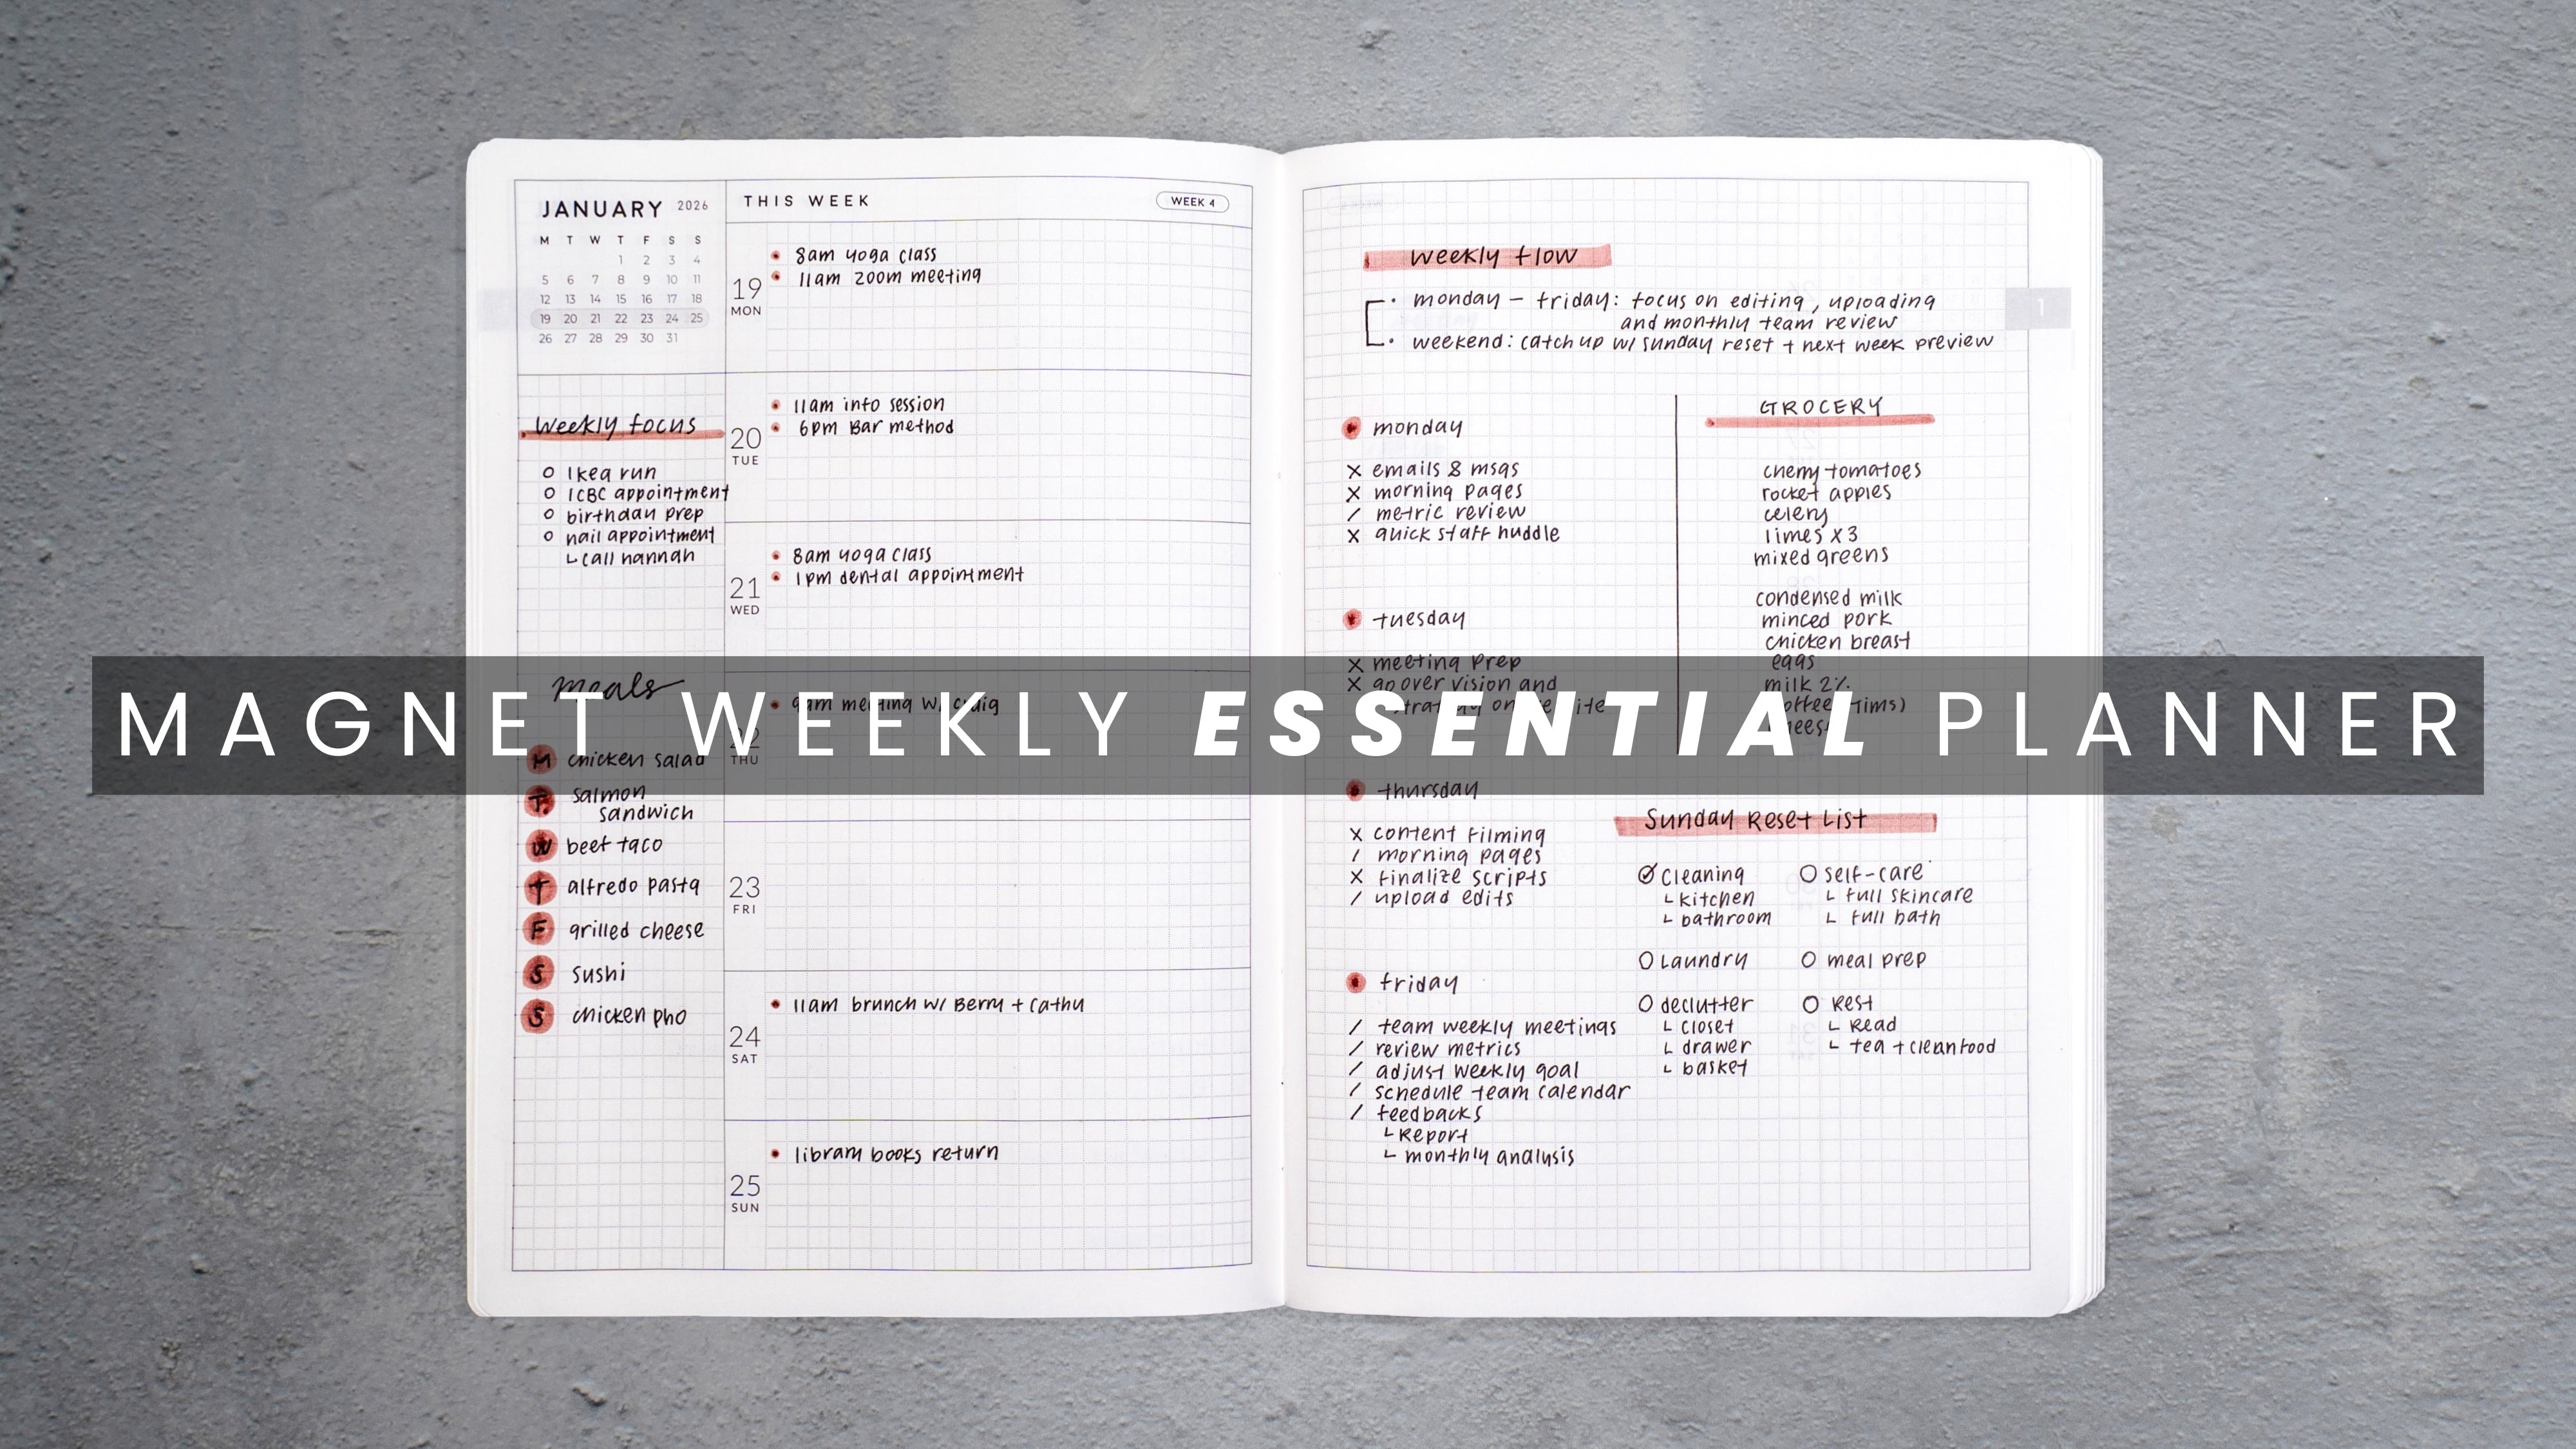 JANUARY 2026
M T W T F S S
1 2 3 4
5 6 7 8 9 10 11
12 13 14 15 16 17 18
19 20 21 22 23 24 25
26 27 28 29 30 31
Weekly focus
Ikea run
ICBC appointment
birthday prep
nail appointment
call hannah
meals
M chicken salad
T. salmon
sandwich
W beef taco
T alfredo pasta
F grilled cheese
S sushi
S chicken pho
THIS WEEK
WEEK 4
8am yoga class
11am zoom meeting
19
MON
11am info session
6pm Bar method
20
TUE
8am yoga class
1pm dental appointment
21
WED
9am meeting w/ Craig
22
THU
23
FRI
11am brunch w/ Berry + Cathy
24
SAT
library books return
25
SUN
MAGNET WEEKLY ESSENTIAL PLANNER
weekly flow
monday - friday: focus on editing, uploading
and monthly team review
weekend: catch up w/ sunday reset + next week preview
1
monday
x emails & msgs
x morning pages
/ metric review
x quick staff huddle
tuesday
x meeting prep
x go over vision and
thursday
x content filming
/ morning pages
x finalize scripts
/ upload edits
friday
/ team weekly meetings
/ review metrics
/ adjust weekly goal
/ schedule team calendar
/ feedbacks
Report
monthly analysis
GROCERY
cherry tomatoes
rocket apples
celery
limes x3
mixed greens
condensed milk
minced pork
chicken breast
eggs
milk 2%
Sunday Reset List
cleaning
kitchen
bathroom
Laundry
declutter
closet
drawer
basket
self-care
full skincare
full bath
meal prep
Rest
Read
tea + clean food